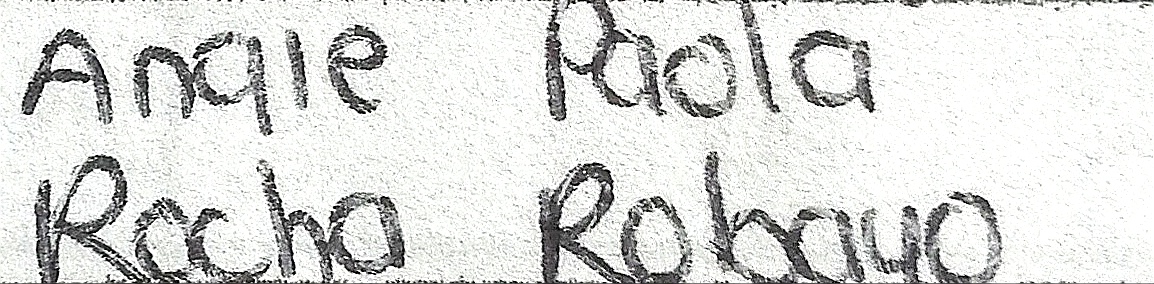 Angie Paola
Rocha Robayo